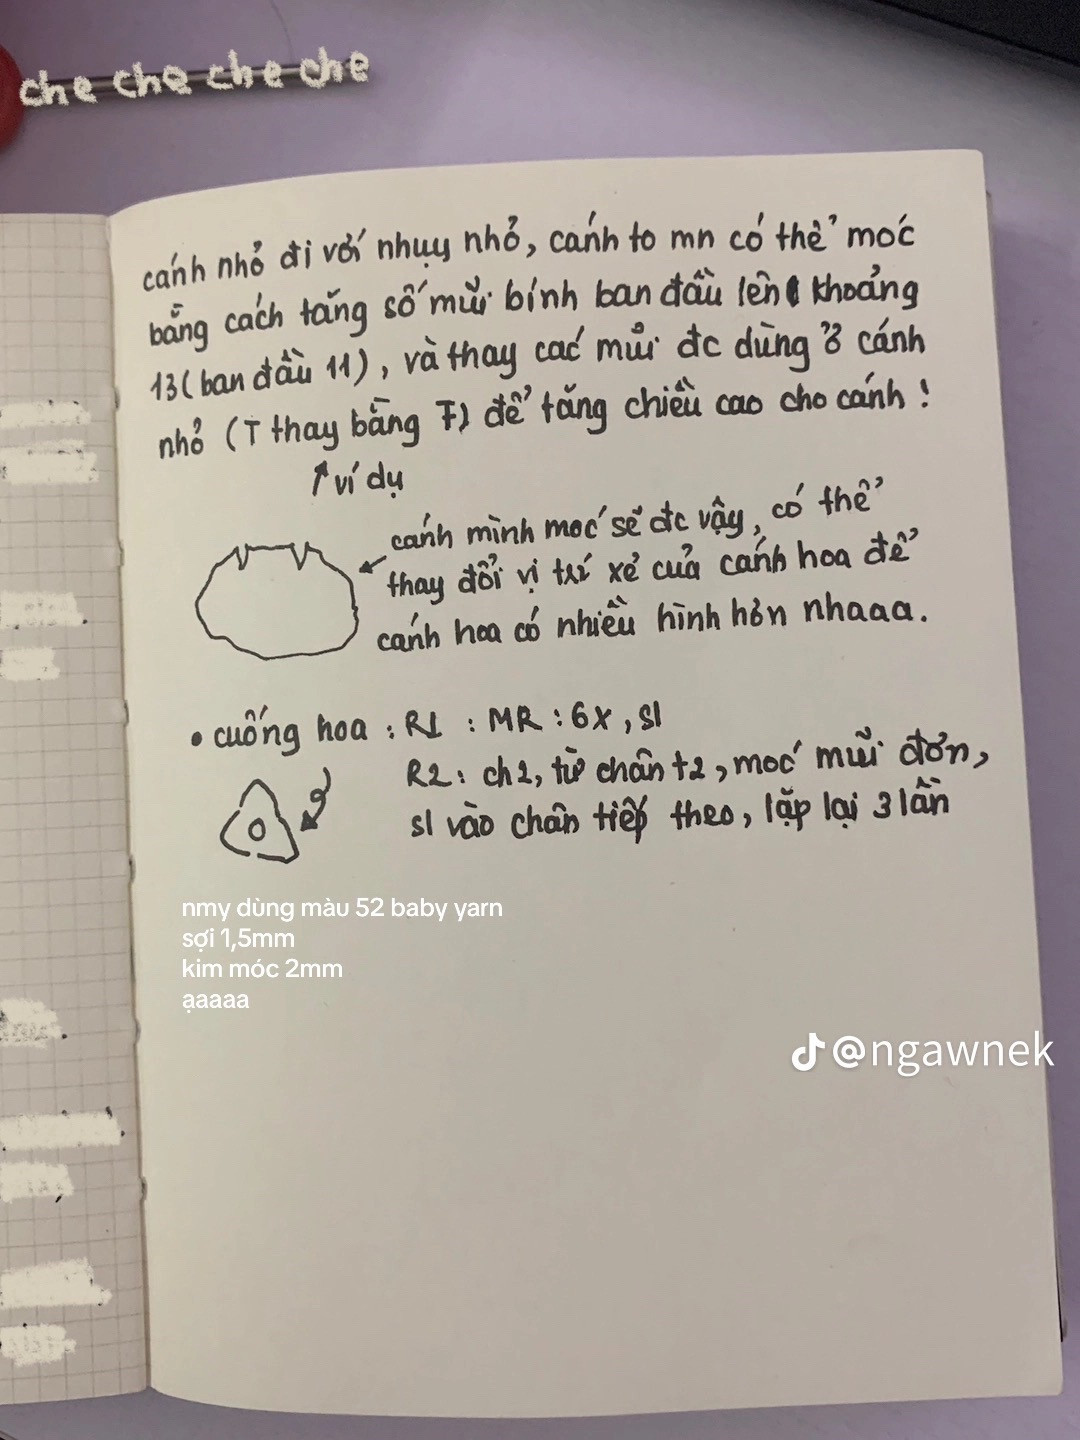 che che che che
cánh nhỏ đi với nhụy nhỏ, cánh to mn có thể móc
bằng cách tăng số mũi bính ban đầu lên khoảng
13 (ban đầu 11), và thay các mũi đc dùng ở cánh
nhỏ (T thay bằng F) để tăng chiều cao cho cánh !
ví dụ
cánh mình móc sẽ đc vậy, có thể
thay đổi vị trí xẻ của cánh hoa để
cánh hoa có nhiều hình hơn nhaaa.
• cuống hoa : R1 : MR : 6x, sl
R2 : ch2, từ chân t2, móc mũi đơn,
sl vào chân tiếp theo, lặp lại 3 lần
nmy dùng màu 52 baby yarn
sợi 1,5mm
kim móc 2mm
ạaaaa
@ngawnek